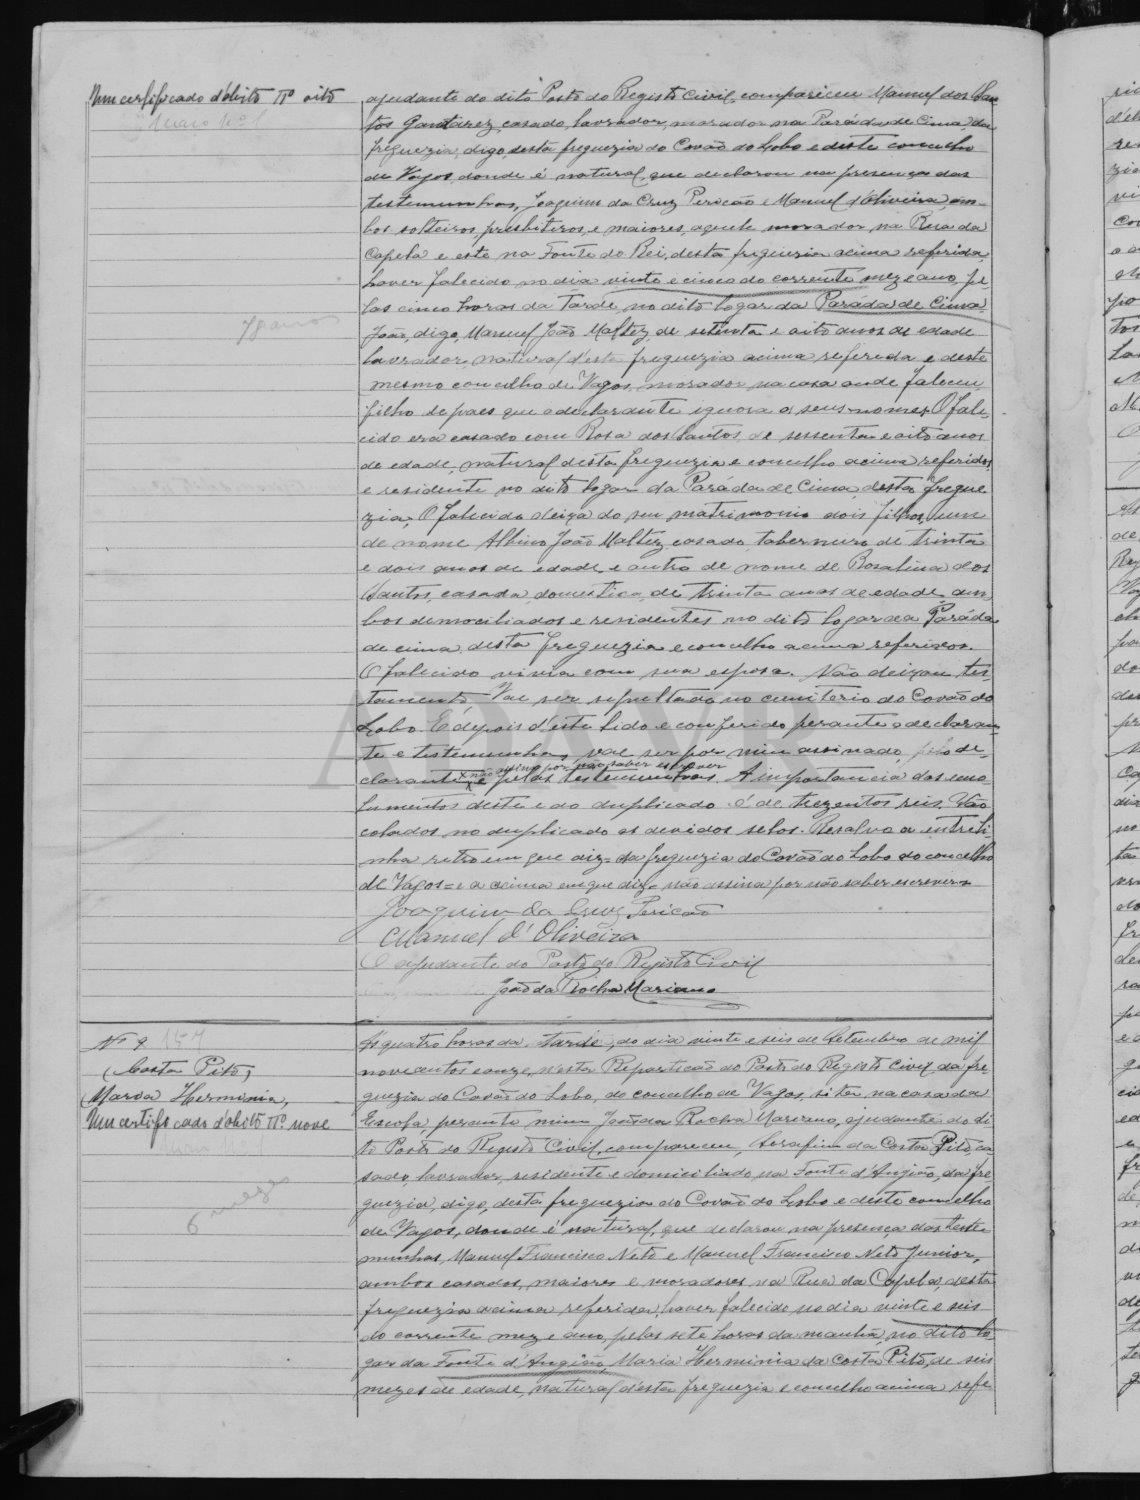 Um certificado d'obito Nº oito
Maço nº 1
78 annos
ajudante do dito Posto do Registo Civil, compareceu Manuel dos San-
tos Gandarez, casado, lavrador, morador na Paráda de Cima, da
freguezia, digo, desta freguezia do Covão do Lobo e deste concelho
de Vagos, donde é natural, que declarou na presença das
testemunhas, Joaquim da Cruz Pericão e Manuel d'Oliveira, am-
bos solteiros, presbiteros, e maiores, aquele morador na Rua da
Capela e este na Fonte do Rei, desta freguezia acima referida,
haver falecido no dia vinte e cinco do corrente mez e ano, pe-
las cinco horas da Tarde, no dito logar da Paráda de Cima,
João, digo, Manuel João Maltez, de setenta e oito anos de edade
lavrador, natural d'esta freguezia acima referida e deste
mesmo concelho de Vagos, morador na casa onde faleceu,
filho de paes que o declarante ignora os seus nomes. O fale-
cido era casado com Rosa dos Santos, de sessenta e oito anos
de edade, natural desta freguezia e concelho acima referidos,
e residente no dito logar da Paráda de Cima, desta fregue-
zia. O falecido deixa do seu matrimonio dois filhos, um
de nome Albino João Maltez, casado, taberneiro de trinta
e dois anos de edade, e outro de nome de Rosalina dos
Santos, casada, domestica, de trinta anos de edade, am-
bos demociliados e residentes no dito logar da Paráda
de cima, desta freguezia e concelho acima referidos.
O falecido vivia com sua esposa. Não deixou tes-
tamento, Vae ser sepultado no cemiterio do Covão do
Lobo. E depois d'este lido e conferido perante o declaran-
te e testemunhas, vae ser por mim assinado, pelo de-
x não assina por não saber escrever
clarante x e pelas testemunhas. A importancia dos emo-
lumentos deste e do duplicado é de trezentos reis. Vão
colados no duplicado os devidos selos. Resalvo a entreli-
nha retro em que diz = da freguezia do Covão do Lobo do concelho
de Vagos = e a acima em que diz = não assina por não saber escrever =
Joaquim da Cruz Pericão
Manuel d'Oliveira
O ajudante do Posto do Registo Civil
João da Rocha Mariano
Nº 9 157
Costa Pito,
Maria Herminia,
Um certificado d'obito Nº nove
6 mezes
Ás quatro horas da Tarde, do dia vinte e seis de Setembro de mil
novecentos e onze, n'esta Repartição do Posto do Registo Civil da fre-
guezia do Covão do Lobo, do concelho de Vagos, sita na casa da
Escola, perante mim João da Rocha Mariano, ajudante do di-
to Posto do Registo Civil, compareceu, Serafim da Costa Pito, ca-
sado, lavrador, residente e domiciliado, na Fonte d'Angião, da fre-
guezia, digo, desta freguezia do Covão do Lobo e deste concelho
de Vagos, donde é natural, que declarou na presença das teste-
munhas, Manuel Francisco Neto e Manuel Francisco Neto Junior,
ambos casados, maiores e moradores na Rua da Capela, desta
freguezia acima referida, haver falecido no dia vinte e seis
do corrente mez e ano, pelas sete horas da manhã, no dito lo-
gar da Fonte d'Angião, Maria Herminia da Costa Pito, de seis
mezes de edade, natural d'esta freguezia e concelho acima refe